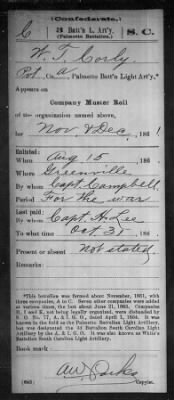 (Confederate.)
C 3 Batt'n L. Art'y. S. C.
(Palmetto Battalion.)
W. T. Corly
Pvt, Co. A, Palmetto Batt'n Light Art'y.*
Appears on
Company Muster Roll
of the organization named above,
for Nov & Dec, 186
Enlisted:
When Aug 15, 186
Where Greenville
By whom Capt. Campbell
Period For the war
Last paid:
By whom Capt. A. Lee
To what time Oct 31, 186
Present or absent Not stated
Remarks:
*This battalion was formed about November, 1861, with
three companies, A to C. Seven other companies were added
at various times, the last about June 21, 1863. Companies
H, I and K, not being legally organized, were disbanded by
S. O. No. 77, A. & I. G. O., dated April 1, 1864. It was
known in the field as the Palmetto Battalion Light Artillery,
but was designated the 3d Battalion South Carolina Light
Artillery by the A. & I. G. O. It was also known as White's
Battalion South Carolina Light Artillery.
Book mark:
(642)
Copyist.